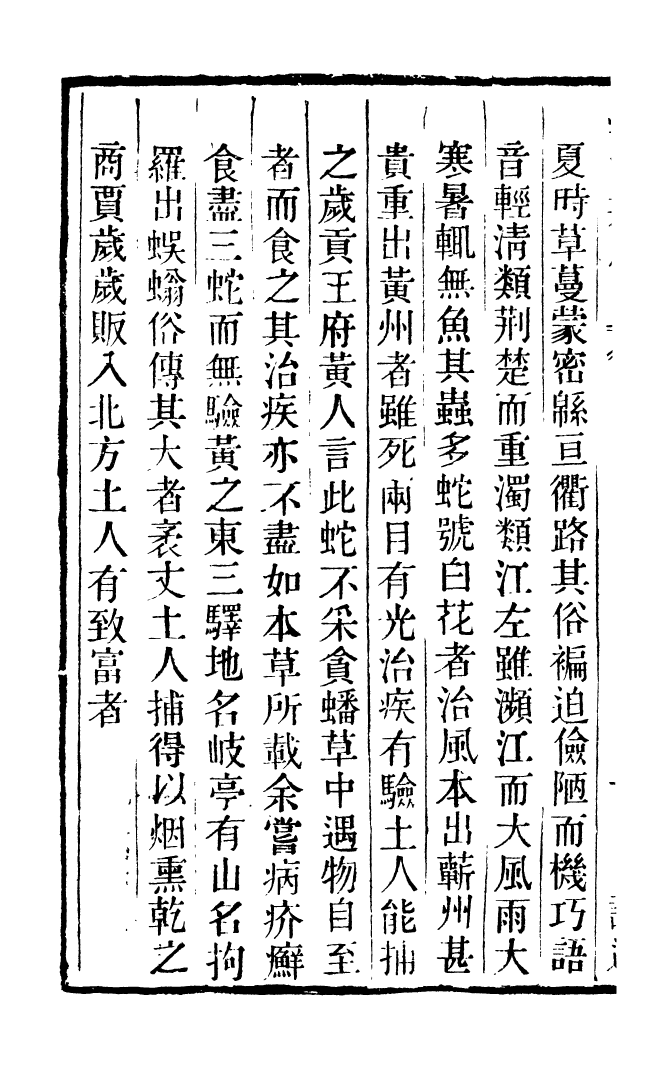 夏時草蔓蒙密緜亘衢路其俗褊迫儉陋而機巧語
音輕淸類荆楚而重濁類江左雖瀕江而大風雨大
寒暑輒無魚其蟲多蛇號白花者治風本出蘄州甚
貴重出黃州者雖死兩目有光治疾有驗土人能捕
之歲貢王府黃人言此蛇不采食蟠草中遇物自至
者而食之其治疾亦不盡如本草所載余嘗病疥癬
食盡三蛇而無驗黃之東三驛地名岐亭有山名拘
羅出蜈蚣俗傳其大者袤丈土人捕得以烟熏乾之
商賈歲歲販入北方土人有致富者